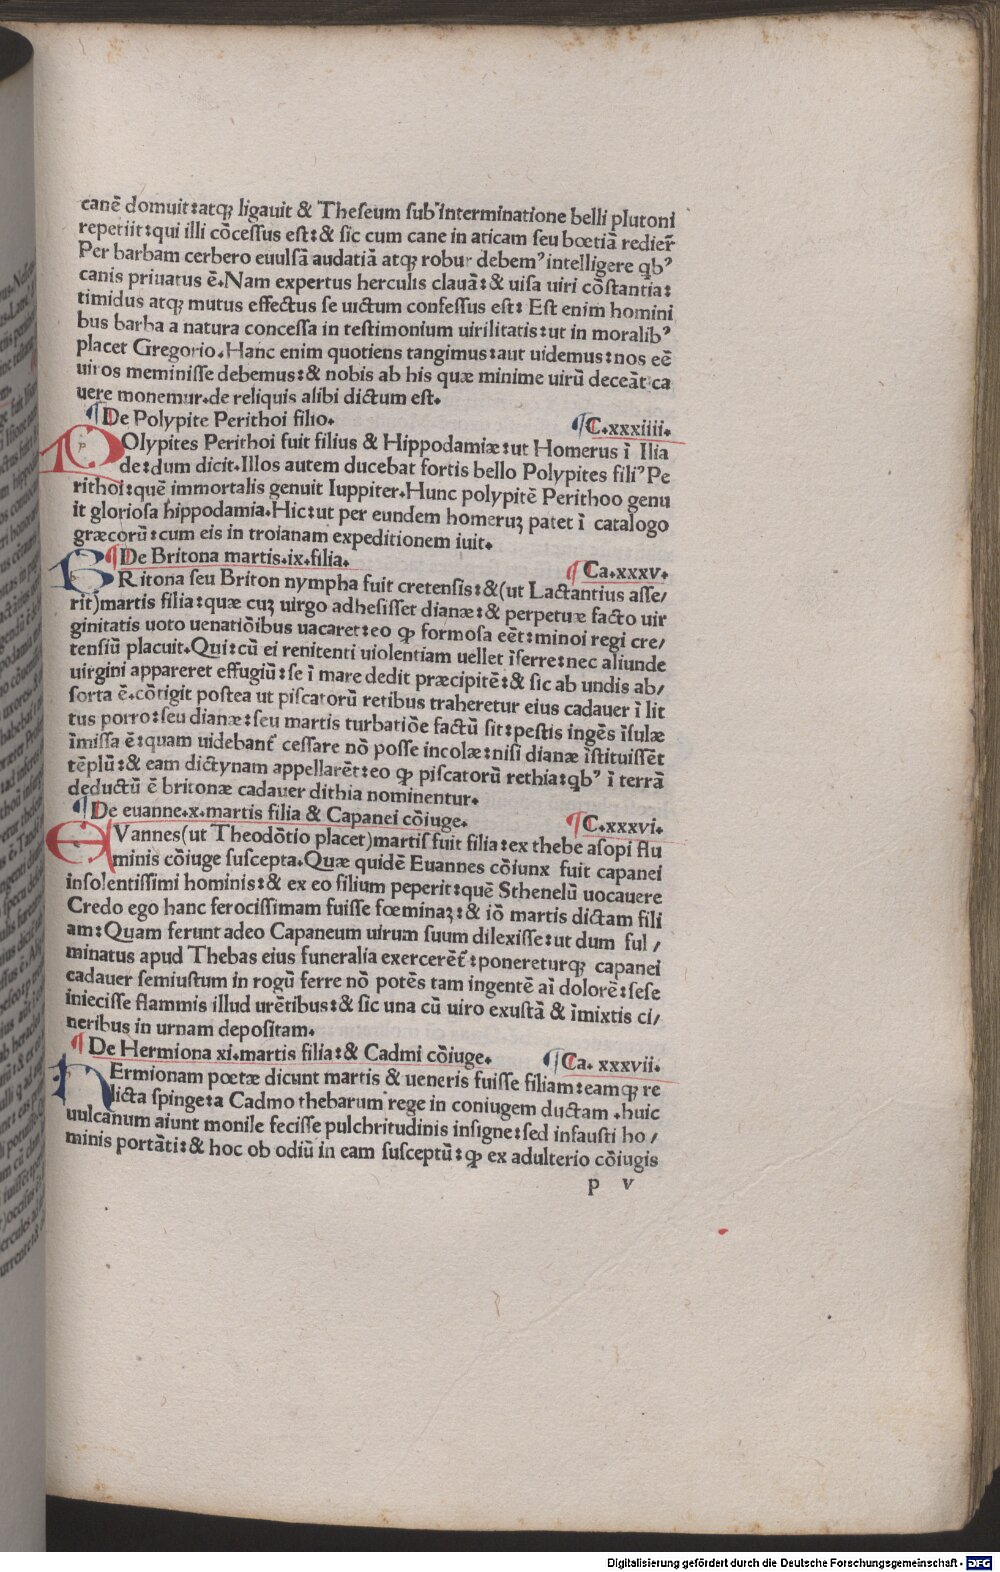 canē domuit:atqꝫ ligauit & Theseum sub'interminatione belli plutoni
repetiit:qui illi cōcessus est:& sic cum cane in aticam seu bœtiā redier̄
Per barbam cerbero euulsā audatiā atqꝫ robur debemꝰ intelligere qbꝰ
canis priuatus ē.Nam expertus herculis clauā:& uisa uiri cōstantia:
timidus atqꝫ mutus effectus se uictum confessus est: Est enim homini
bus barba a natura concessa in testimonium uirilitatis:ut in moralibꝰ
placet Gregorio.Hanc enim quotiens tangimus:aut uidemus:nos eē
uiros meminisse debemus:& nobis ab his quæ minime uirū deceāt ca
uere monemur.de reliquis alibi dictum est.
¶De Polypite Perithoi filio. ¶C.xxxiiii.
POlypites Perithoi fuit filius & Hippodamiæ:ut Homerus ī Ilia
de:dum dicit.Illos autem ducebat fortis bello Polypites filiꝰ Pe
rithoi:quē immortalis genuit Iuppiter.Hunc polypitē Perithoo genu
it gloriosa hippodamia.Hic:ut per eundem homeruꝫ patet ī catalogo
græcorū:cum eis in troianam expeditionem iuit.
¶De Britona martis.ix.filia. ¶Ca.xxxv.
BRitona seu Briton nympha fuit cretensis:&(ut Lactantius asse/
rit)martis filia:quæ cuꝫ uirgo adhesisset dianæ:& perpetuæ facto uir
ginitatis uoto uenatiōibus uacaret:eo ꝙ formosa eēt:minoi regi cre/
tensiū placuit.Qui:cū ei renitenti uiolentiam uellet īferre:nec aliunde
uirgini appareret effugiū:se ī mare dedit præcipitē:& sic ab undis ab/
sorta ē.cōtigit postea ut piscatorū retibus traheretur eius cadauer ī lit
tus porro:seu dianæ:seu martis turbatiōe factū sit:pestis ingēs īsulæ
īmissa ē:quam uidebant̄ cessare nō posse incolæ:nisi dianæ īstituissēt
tēplū:& eam dictynam appellarēt:eo ꝙ piscatorū rethia:qbꝰ ī terrā
deductū ē britonæ cadauer dithia nominentur.
¶De euanne.x.martis filia & Capanei cōiuge. ¶C.xxxvi.
EVannes(ut Theodōtio placet)martis fuit filia:ex thebe asopi flu
minis cōiuge suscepta.Quæ quidē Euannes cōiunx fuit capanei
insolentissimi hominis:& ex eo filium peperit:quē Sthenelū uocauere
Credo ego hanc ferocissimam fuisse fœminaꝫ:& iō martis dictam fili
am:Quam ferunt adeo Capaneum uirum suum dilexisse:ut dum ful /
minatus apud Thebas eius funeralia exercerēt̄:poneretur qꝫ capanei
cadauer semiustum in rogū ferre nō potēs tam ingentē aī dolorē:sese
iniecisse flammis illud urētibus:& sic una cū uiro exustā & īmixtis ci/
neribus in urnam depositam.
¶De Hermiona xi.martis filia:& Cadmi cōiuge. ¶Ca. xxxvii.
HErmionam poetæ dicunt martis & ueneris fuisse filiam:eamqꝫ re
licta spinge:a Cadmo thebarum rege in coniugem ductam .huic
uulcanum aiunt monile fecisse pulchritudinis insigne:sed infausti ho /
minis portāti:& hoc ob odiū in eam susceptū:ꝙ ex adulterio cōiugis
p v
Digitalisierung gefördert durch die Deutsche Forschungsgemeinschaft - DFG